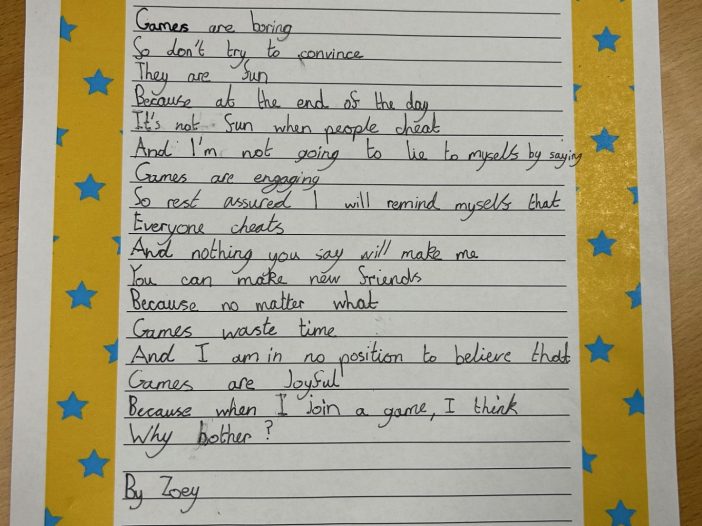 Games are boring
So don't try to convince
They are fun
Because at the end of the day
It's not fun when people cheat
And I'm not going to lie to myself by saying
Games are engaging
So rest assured I will remind myself that
Everyone cheats
And nothing you say will make me
You can make new friends
Because no matter what
Games waste time
And I am in no position to believe that
Games are Joyful
Because when I join a game, I think
Why bother?
By Zoey